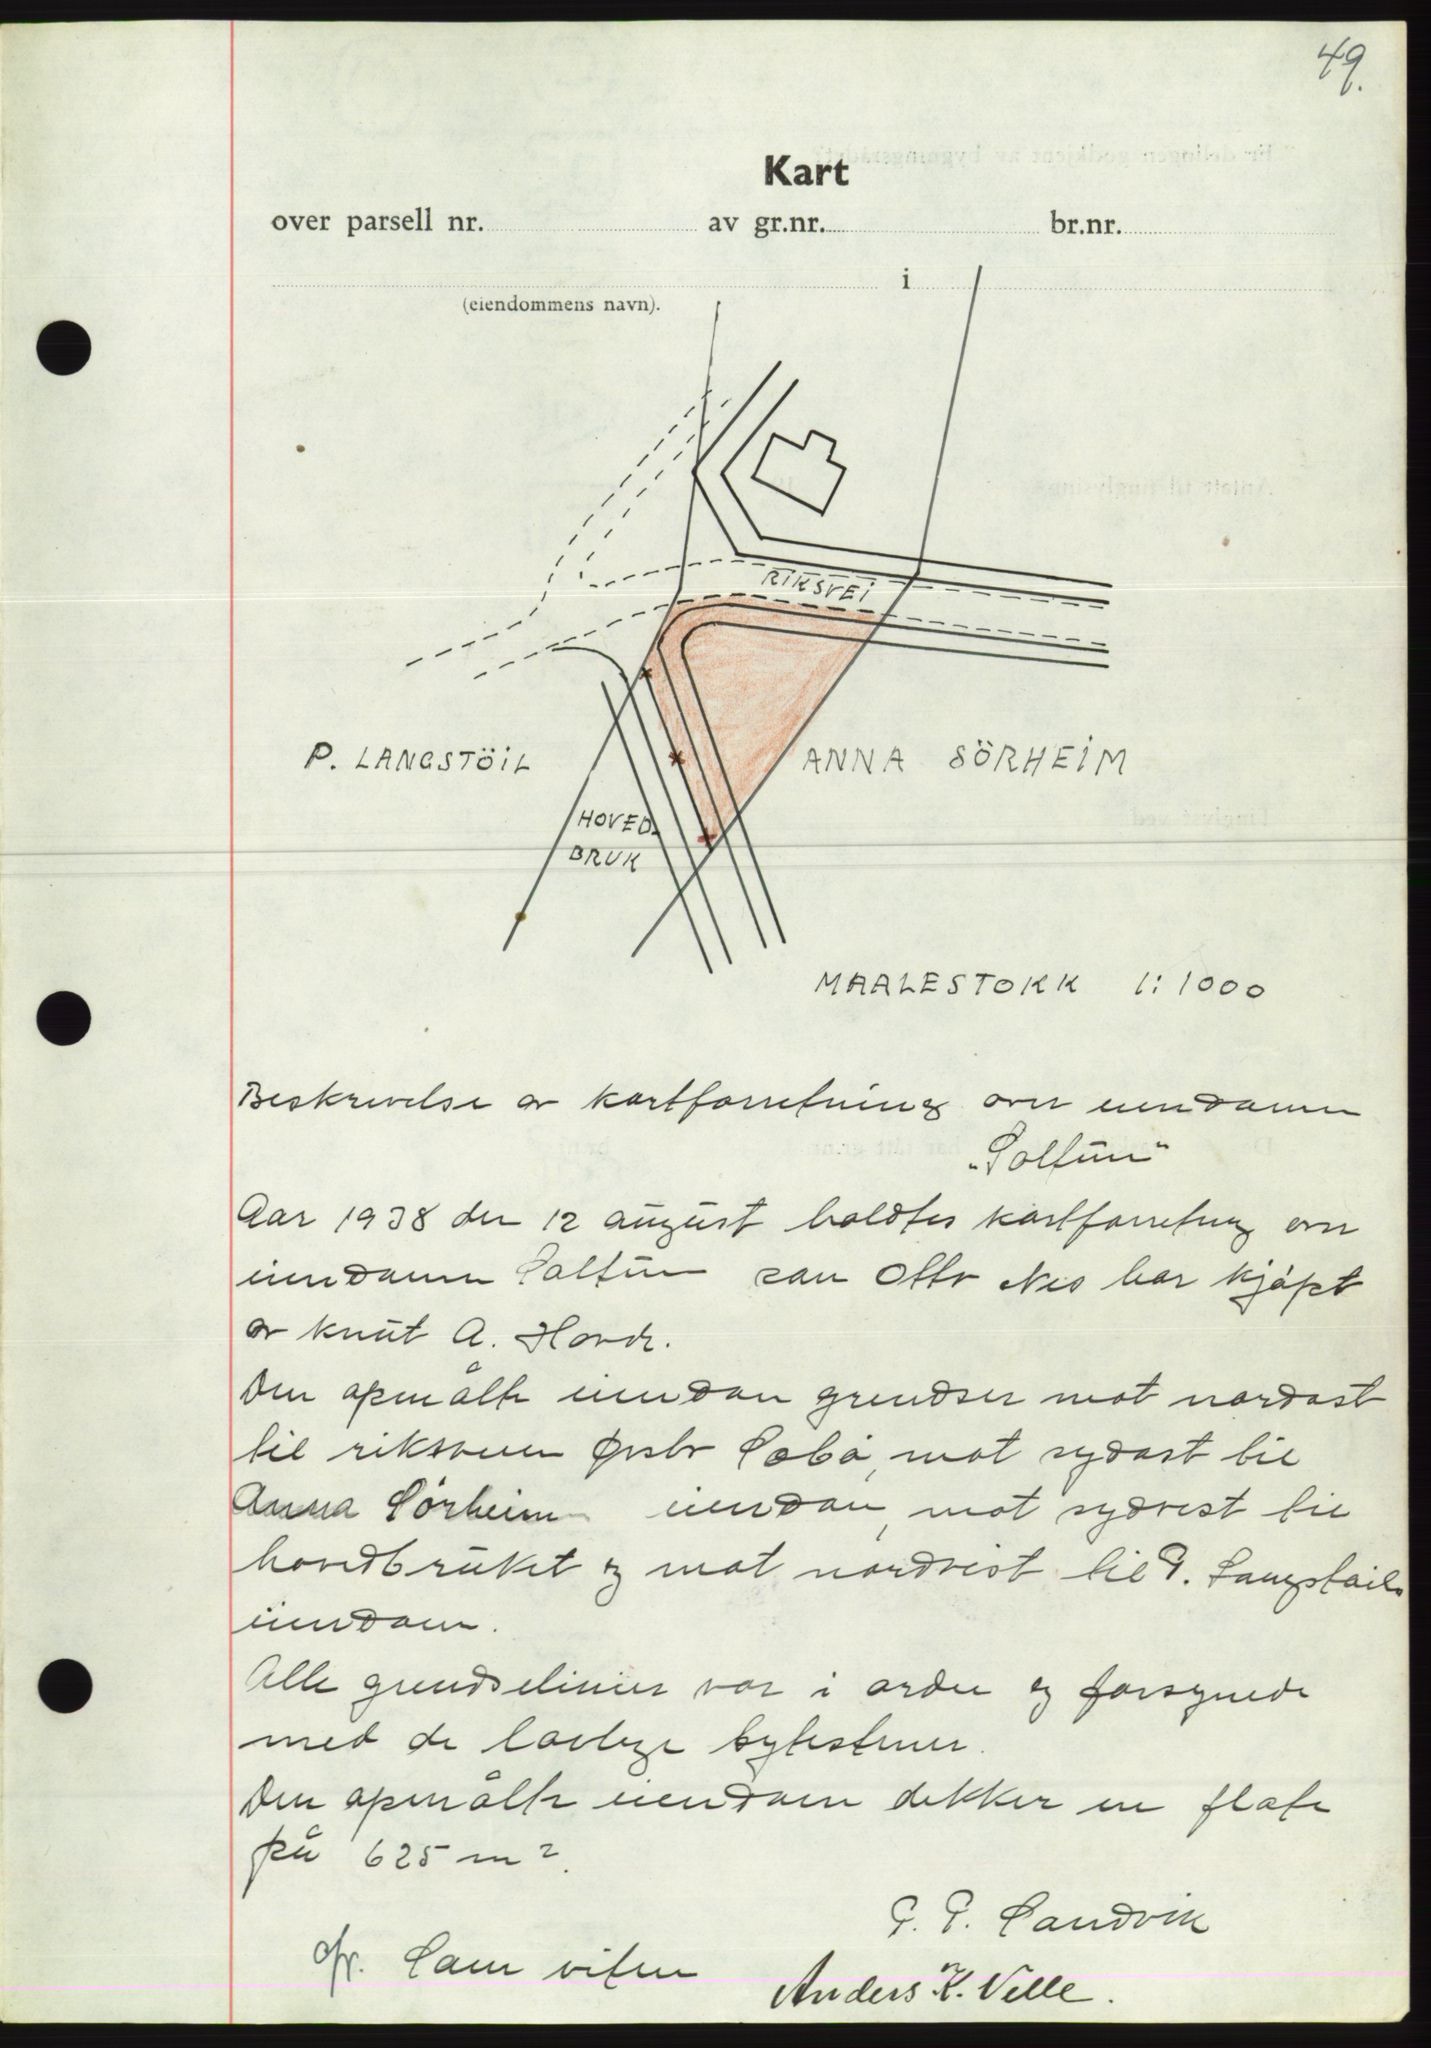 49.
Kart
over parsell nr. av gr.nr. br.nr.
i
(eiendommens navn).
RIKSVEI
P. LANGSTÖIL
ANNA SÖRHEIM
HOVED-
BRUK
MAALESTOKK 1:1000
Beskrivelse av kartforretning over eiendommen
"Soltun"
Aar 1938 den 12 august holdtes kartforretning over
eiendommen Soltun som Otto Nes har kjøpt
av Knut A. Hovde.
Den opmålte eiendom grendser mot nordost
til riksveien Ørsta Sæbø, mot sydost til
Anna Sørheim eiendom, mot sydvest til
hovedbruket og mot nordvest til P. Langstøils
eiendom.
Alle grendselinier var i orden og forsynede
med de lovlige bytestener.
Den opmålte eiendom dekker en flate
på 625 m².
P. P. Sandvik
Som vitner
Anders K. Velle.